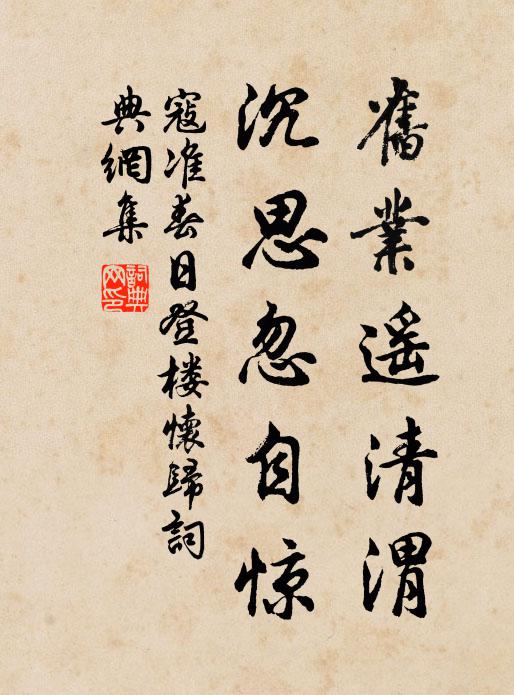 舊業遥清渭
沉思忽自惊
寇准春日登楼懷歸詞
典網集
詞典網印